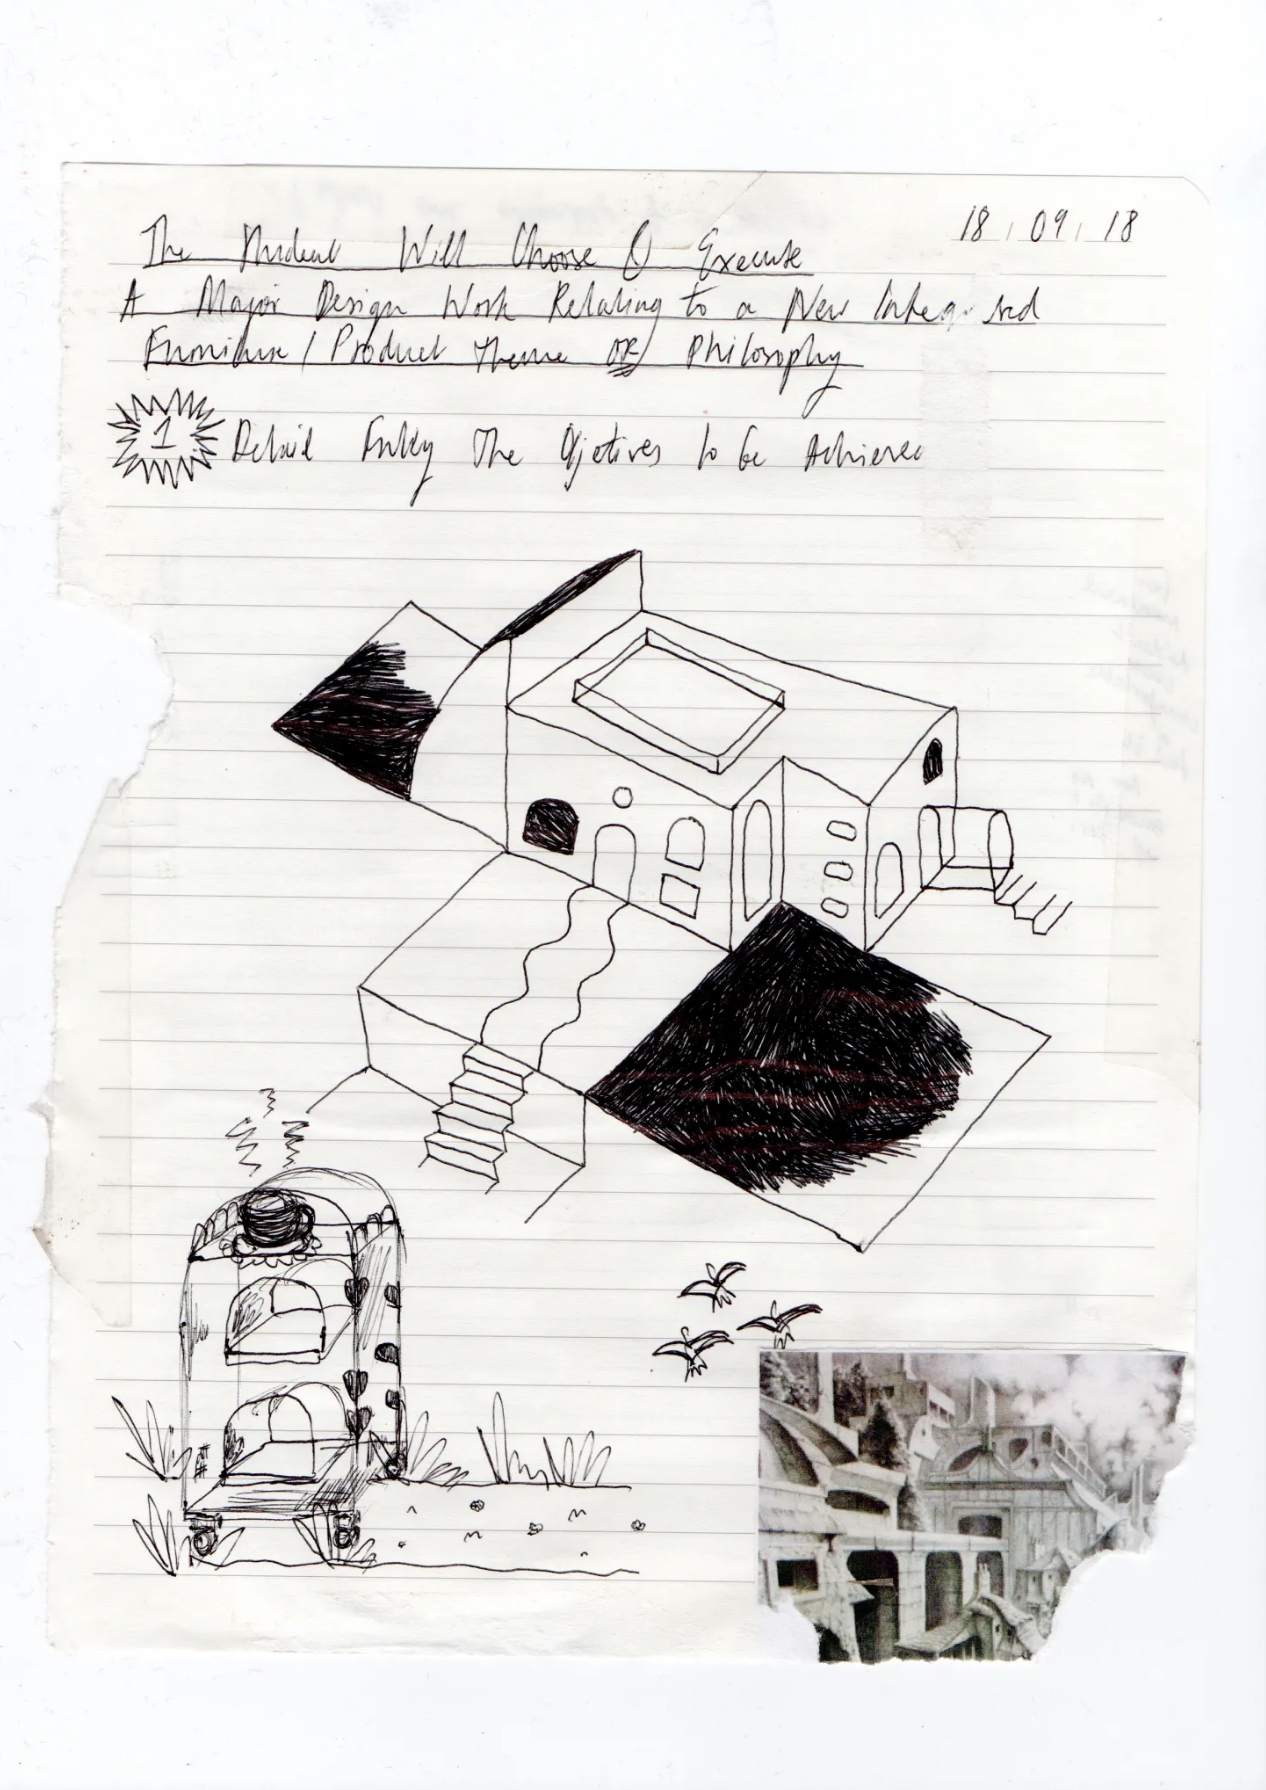 18.09.18
The Student Will Choose & Execute
A Major Design Work Relating to a New Integrated
Furniture / Product Theme OR Philosophy
1 Detail Fully The Ojetives to be Achieved